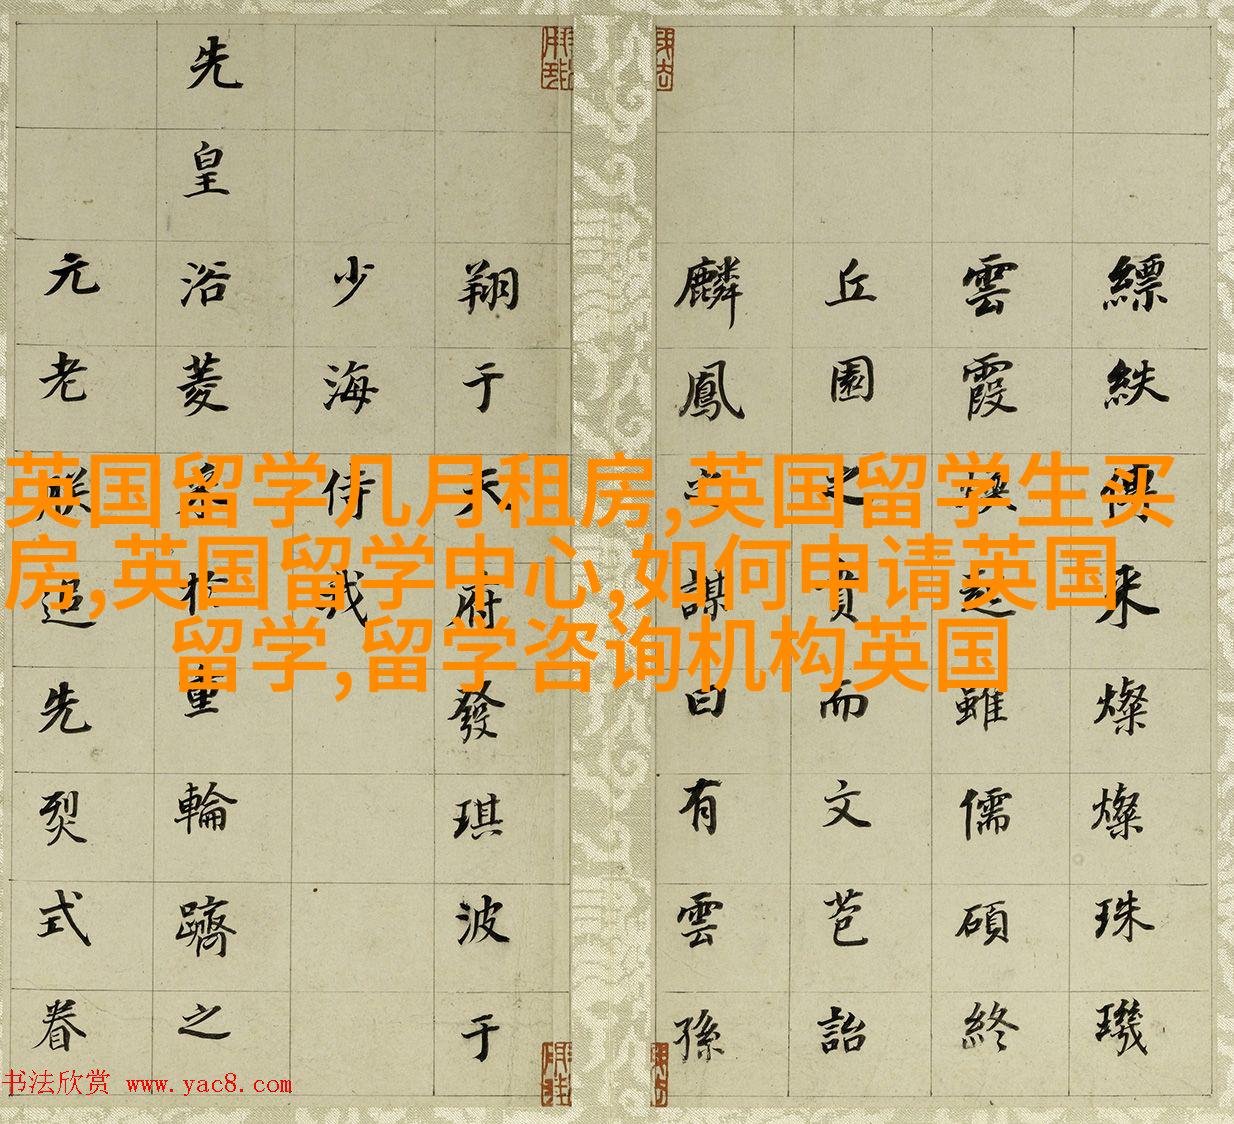 縹帙傳来燦燦珠璣
雲霞煥起雖儒碩終
丘園之賁而文芑詒
麟鳳之謀曰有雲孫
翔于天府發琪波于
少海侍我
先皇浴菱重輪躋之
元老朕迢先烈式眷
英国留学几月租房,英国留学生买
房,英国留学中心,如何申请英国
留学,留学咨询机构英国
书法欣赏 www.yac8.com